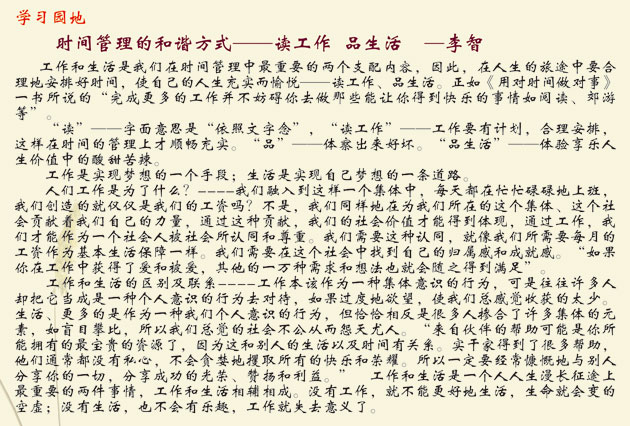 学习园地
时间管理的和谐方式——读工作 品生活 —李智
工作和生活是我们在时间管理中最重要的两个支配内容，因此，在人生的旅途中要合
理地安排好时间，使自己的人生充实而愉悦——读工作、品生活。正如《用对时间做对事》
一书所说的“完成更多的工作并不妨碍你去做那些能让你得到快乐的事情如阅读、郊游
等”。
“读”——字面意思是“依照文字念”，“读工作”——工作要有计划，合理安排，
这样在时间的管理上才顺畅充实。“品”——体察出来好坏。“品生活”——体验享乐人
生价值中的酸甜苦辣。
工作是实现梦想的一个手段；生活是实现自己梦想的一条道路。
人们工作是为了什么？----我们融入到这样一个集体中，每天都在忙忙碌碌地上班，
我们创造的就仅仅是我们的工资吗？不是，我们同样地在为我们所在的这个集体、这个社
会贡献着我们自己的力量，通过这种贡献，我们的社会价值才能得到体现，通过工作，我
们才能作为一个社会人被社会所认同和尊重。我们需要这种认同，就像我们所需要每月的
工资作为基本生活保障一样。我们需要在这个社会中找到自己的归属感和成就感。“如果
你在工作中获得了爱和被爱，其他的一万种需求和想法也就会随之得到满足”。
工作和生活的区别及联系----工作本该作为一种集体意识的行为，可是往往许多人
却把它当成是一种个人意识的行为去对待，如果过度地欲望，使我们总感觉收获的太少。
生活、更多的是作为一种我们个人意识的行为，但恰恰相反是很多人掺合了许多集体的元
素，如盲目攀比，所以我们总觉的社会不公从而怨天尤人。“来自伙伴的帮助可能是你所
能拥有的最宝贵的资源了，因为这和别人的生活以及时间有关系。实干家得到了很多帮助，
他们通常都没有私心，不会贪婪地攫取所有的快乐和荣耀。所以一定要经常慷慨地与别人
分享你的一切，分享成功的光荣、赞扬和利益。” 工作和生活是一个人人生漫长征途上
最重要的两件事情，工作和生活相辅相成。没有工作，就不能更好地生活，生命就会变的
空虚；没有生活，也不会有乐趣，工作就失去意义了。